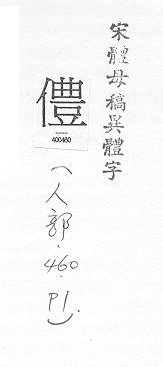 宋體母稿異體字
僼
400460
(人部.460.P1.)